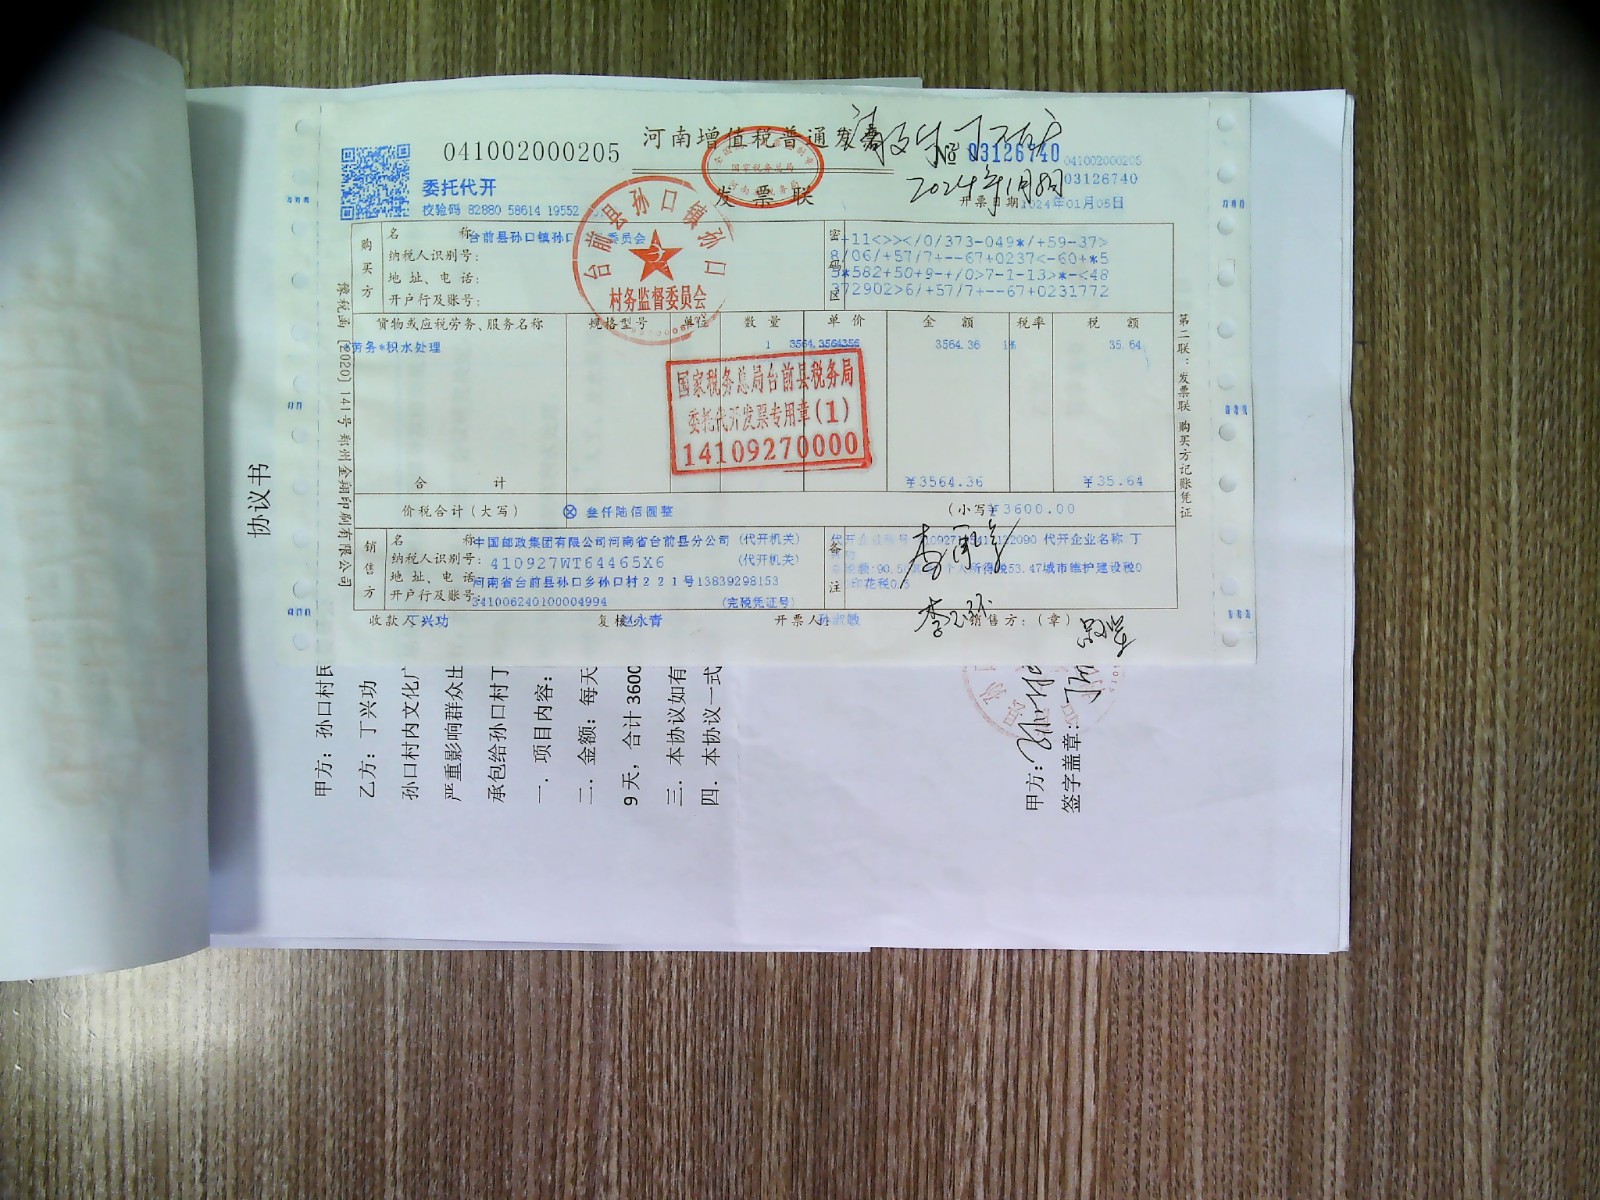 河南增值税普通发票
发票联
041002000205
委托代开
校验码 82880 58614 19552
03126740
041002000205
03126740
2024年1月8日
开票日期
2024年01月05日
购买方
名称
台前县孙口镇孙口
委员会
纳税人识别号:
地址、电话:
开户行及账号:
密码区
-11<>></0/373-049*/+59-37>
8/06/+57/7+--67+0237<-60+*5
5*562+50+9-+/0>7-1-13>*-<48
372902>6/+57/7+--67+0231772
台前县孙口镇孙口
村务监督委员会
国家税务总局
货物或应税劳务、服务名称 规格型号 单位 数量 单价 金额 税率 税额
*劳务*积水处理 1 3564.3564356 3564.36 1% 35.64
国家税务总局台前县税务局
委托代开发票专用章(1)
14109270000
合计 ¥3564.36 ¥35.64
价税合计(大写) ⊗ 叁仟陆佰圆整 (小写) ¥3600.00
销售方
名称
中国邮政集团有限公司河南省台前县分公司 (代开机关)
纳税人识别号:
410927WT64465X6 (代开机关)
地址、电话
河南省台前县孙口乡孙口村221号13839298153
开户行及账号:
341006240100004994 (完税凭证号)
备注
代开企业名称:丁
所得税53.47城市维护建设税0
印花税0.5
收款人 丁兴功 复核 赵永青 开票人: 孙淑敏 销售方:(章)
第二联:发票联 购买方记账凭证
税函[2020]141号郑州金翔印刷有限公司
协议书
甲方:孙口村民
乙方:丁兴功
孙口村内文化广
严重影响群众出
承包给孙口村丁
一.项目内容:
二.金额:每天
9天,合计3600
三.本协议如有
四.本协议一式
甲方:
签字盖章: